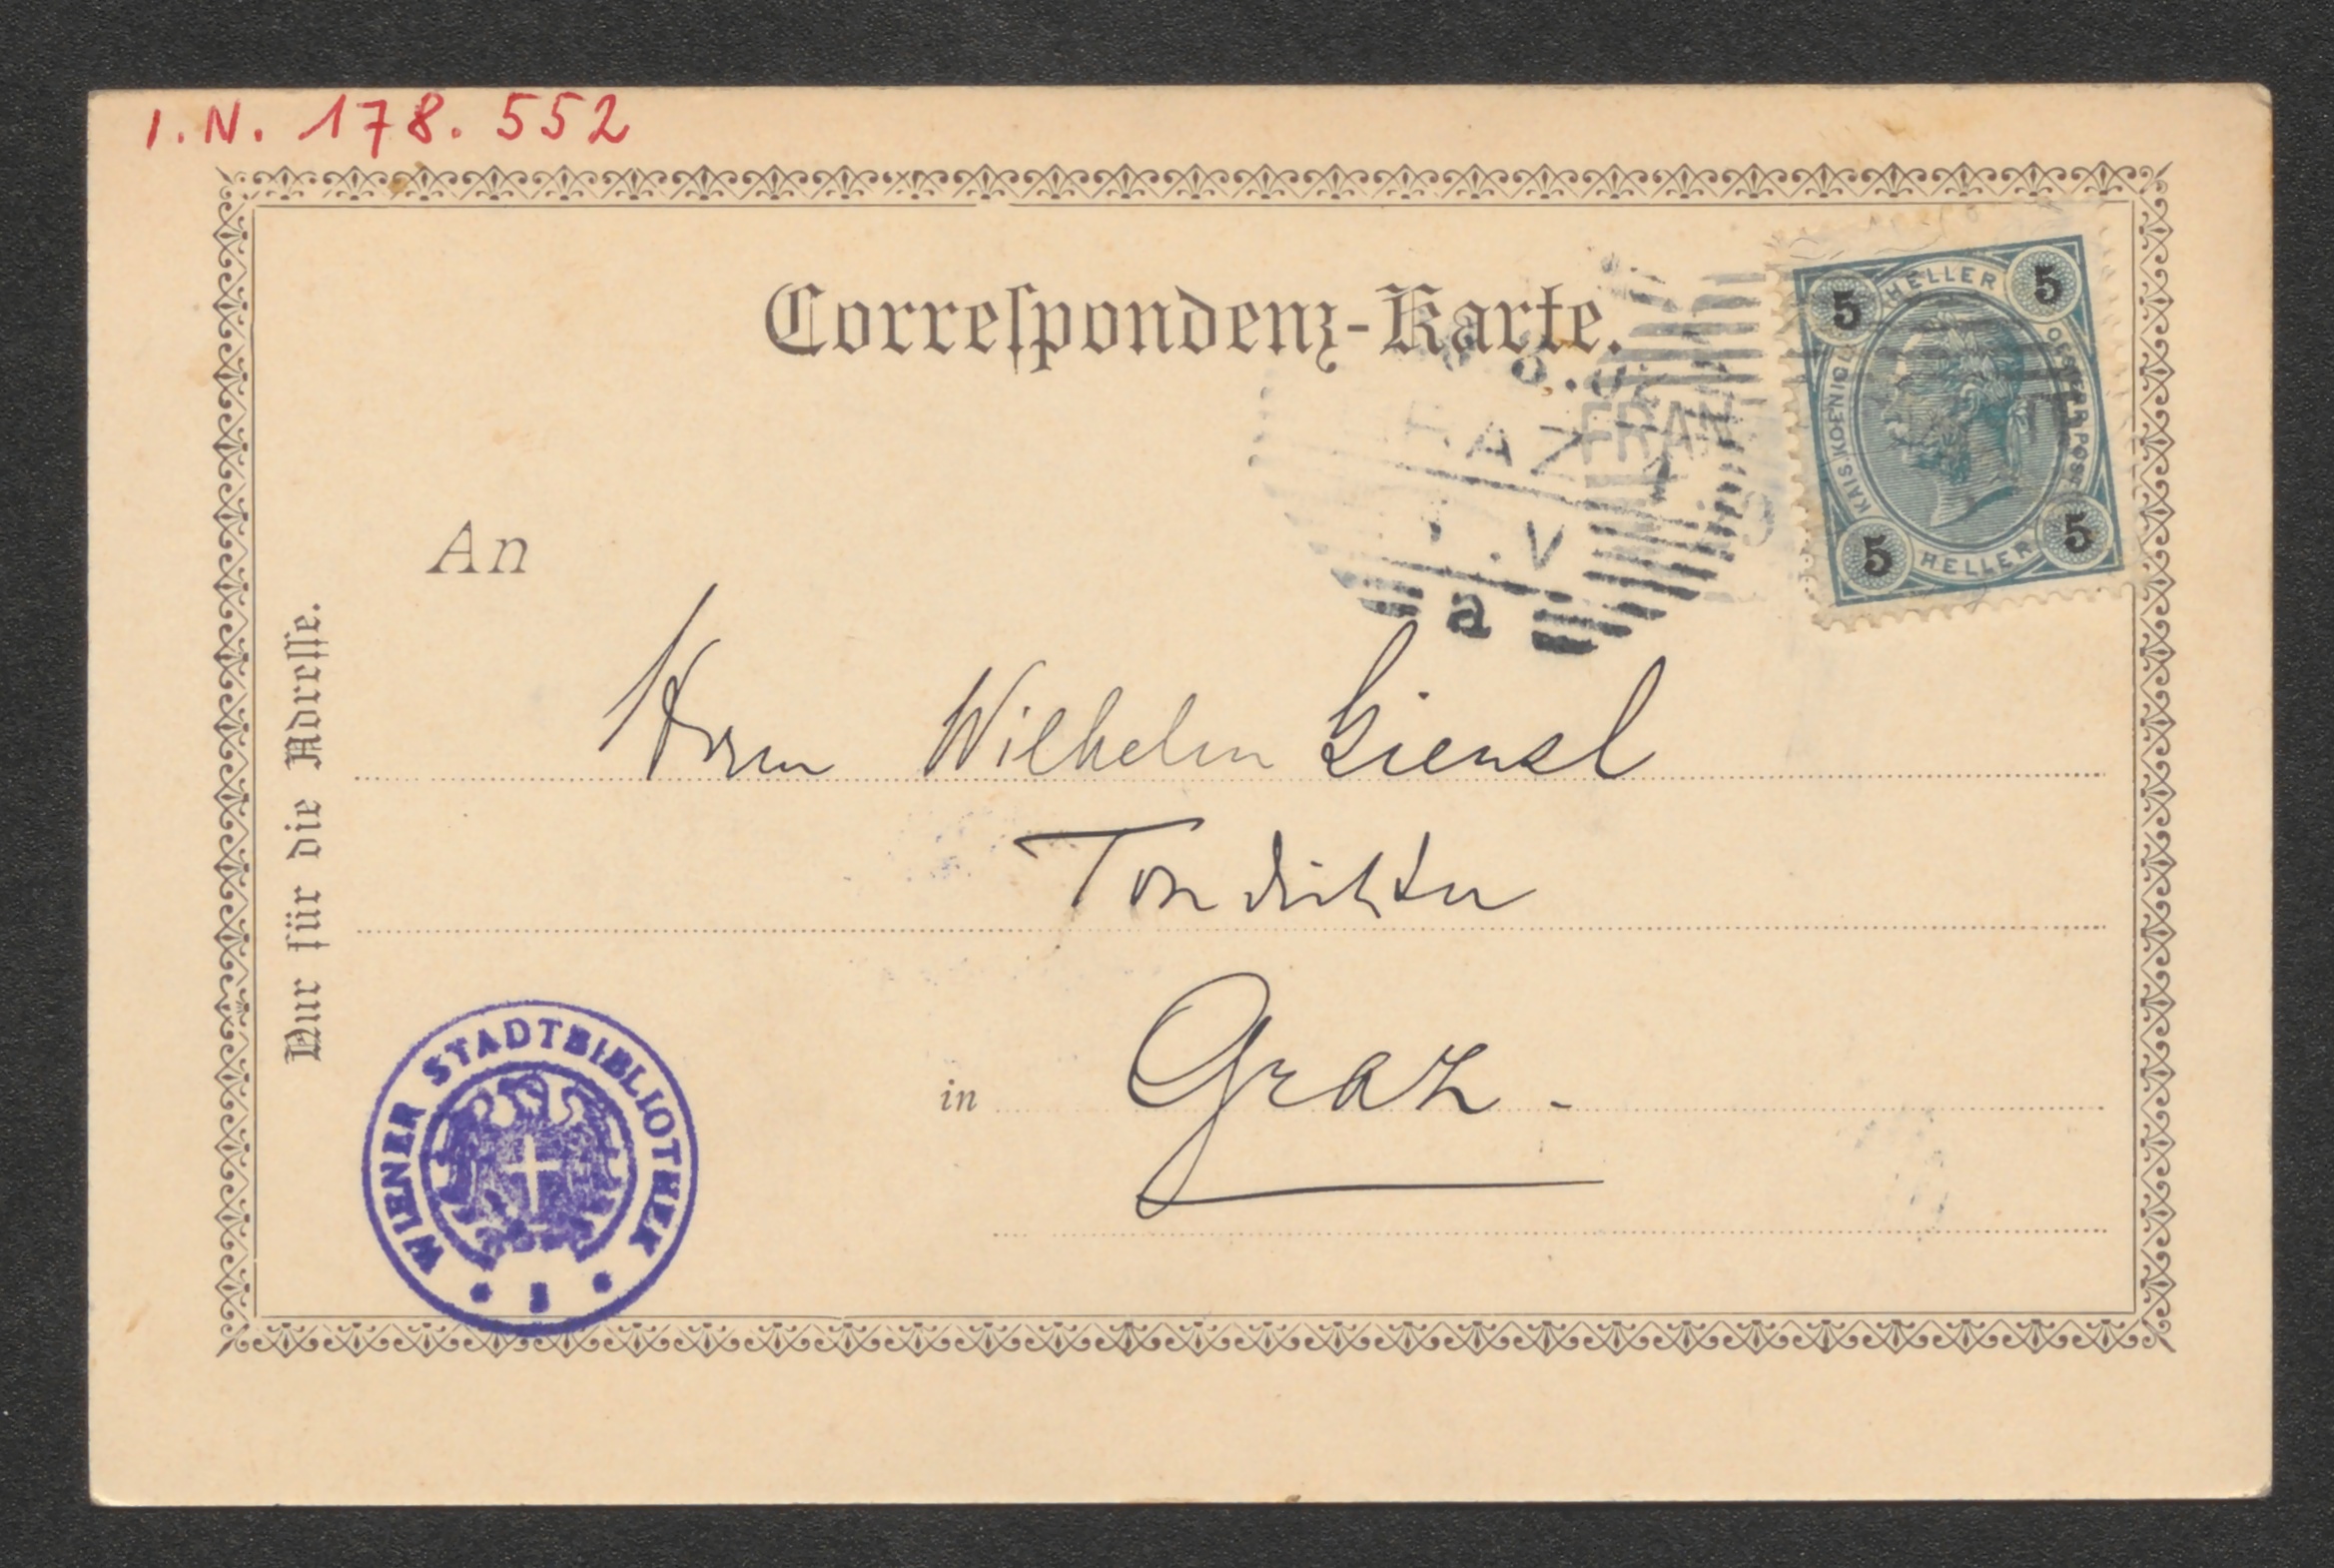 I.N. 178.552
Correſpondenz-Karte.
5 HELLER 5
KAIS. KOENIGL.
OESTERR. POST
5 HELLER 5
FRAN
RAZ 1
. V
a
An
Nur für die Adreſſe.
Herrn Wilhelm Kienzl
Tondichter
in Graz -
WIENER STADTBIBLIOTHEK